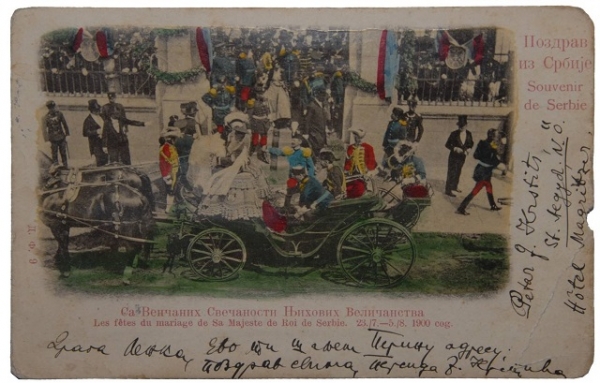 Поздрав
из Србије
Souvenir
de Serbie
Са Венчаних Свечаности Њихових Величанства
Les fêtes du mariage de Sa Majeste de Roi de Serbie. 23./7.—5./8. 1900 год.
Драга Ленка, Ево ти шаљем Перину адресу;
поздрав свима
Petar J. Krstits
St. Aegyd. N.Ö.
Hôtel